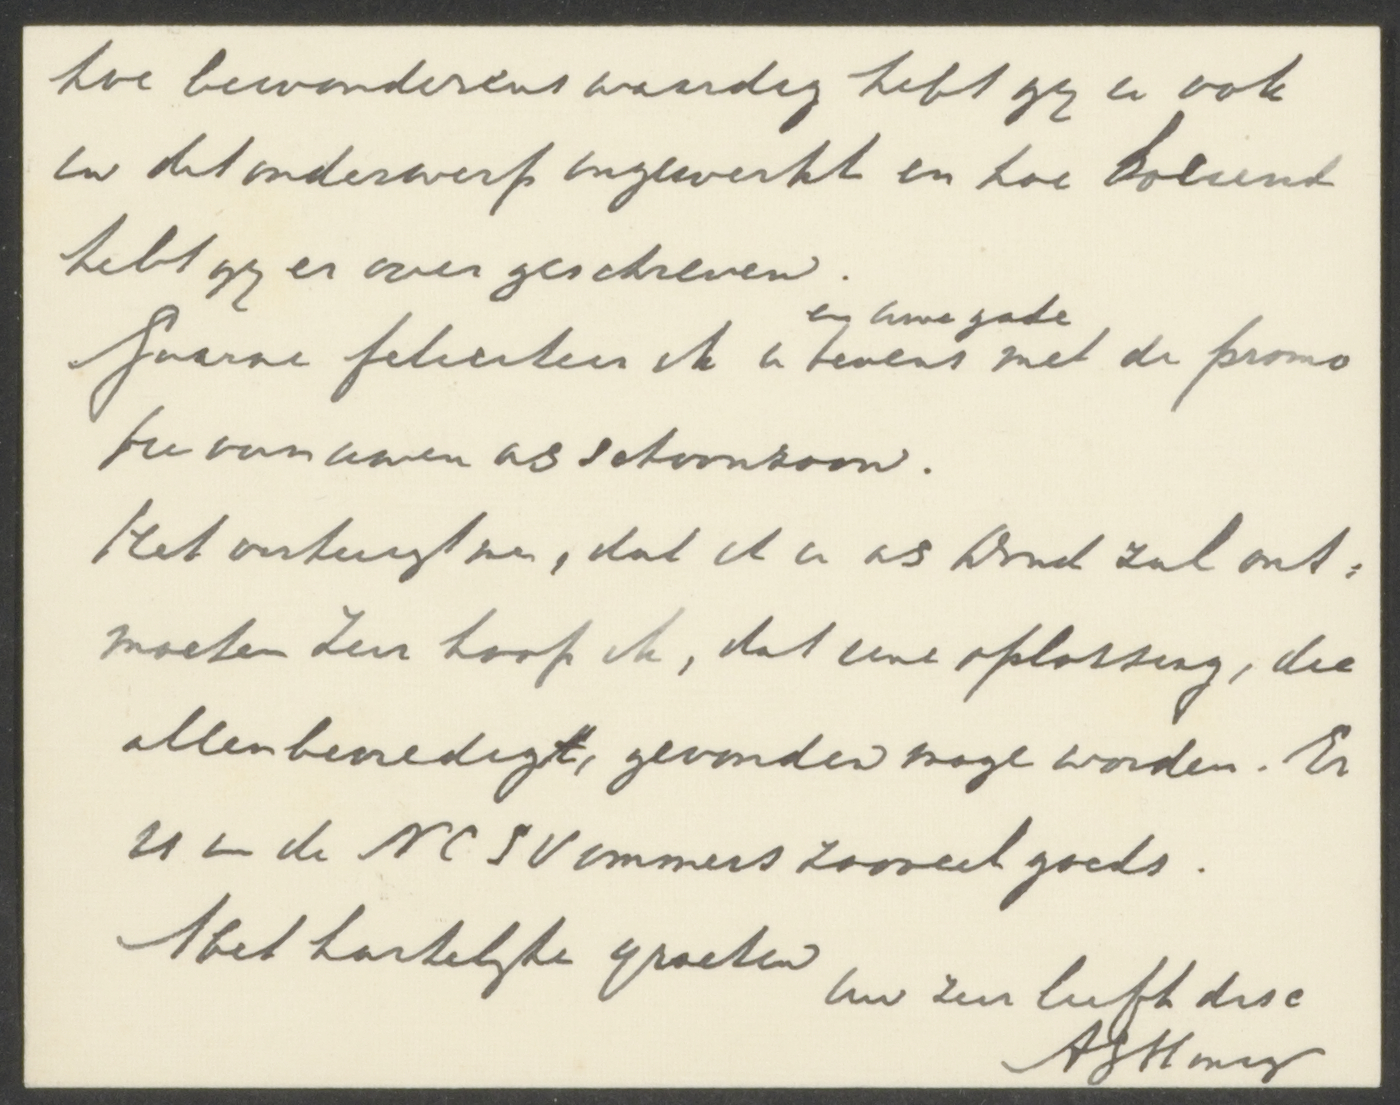 hoe bewonderenswaardig hebt gij u ook
in dit onderwerp ingewerkt en hoe boeiend
hebt gij er over geschreven.
en uwe gade
Gaarne feliciteer ik u tevens met de promo
tie van uwen as schoonzoon.
Het verheugt me, dat ik u as avond zal ont=
moeten Zeer hoop ik, dat eene oplossing, die
allen bevredigt, gevonden moge worden. Er
is in de NCSV immers zooveel goeds.
Met hartelijke groeten
uw zeer liefh disc
AG Honig